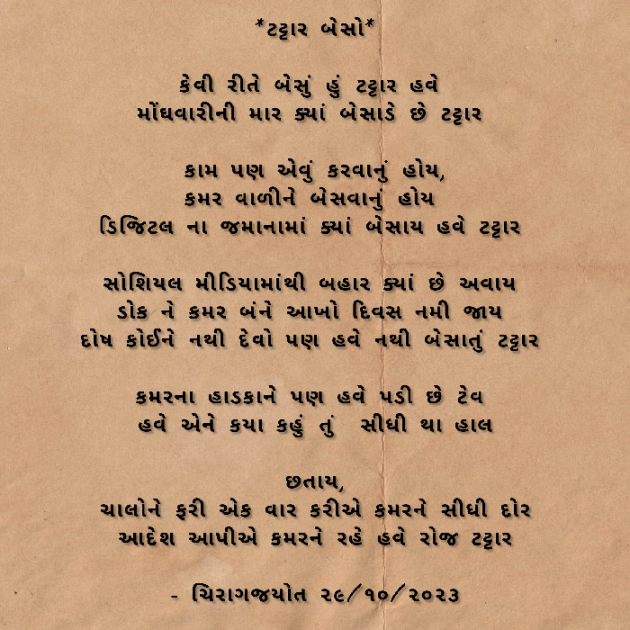 *ટટ્ટાર બેસો*
કેવી રીતે બેસું હું ટટ્ટાર હવે
મોંઘવારીની માર ક્યાં બેસાડે છે ટટ્ટાર
કામ પણ એવું કરવાનું હોય,
કમર વાળીને બેસવાનું હોય
ડિજિટલ ના જમાનામાં ક્યાં બેસાય હવે ટટ્ટાર
સોશિયલ મીડિયામાંથી બહાર ક્યાં છે અવાય
ડોક ને કમર બંને આખો દિવસ નમી જાય
દોષ કોઈને નથી દેવો પણ હવે નથી બેસાતું ટટ્ટાર
કમરના હાડકાને પણ હવે પડી છે ટેવ
હવે એને કયા કહું તું સીધી થા હાલ
છતાય,
ચાલોને ફરી એક વાર કરીએ કમરને સીધી દોર
આદેશ આપીએ કમરને રહે હવે રોજ ટટ્ટાર
- ચિરાગજયોત ૨૯/૧૦/૨૦૨૩